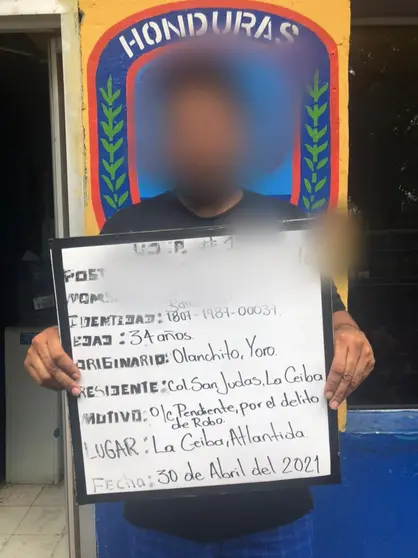 HONDURAS
POST
IDENTIDAD: 1807-1987-00037.
EDAD: 34 años.
ORIGINARIO: Olanchito, Yoro.
RESIDENTE: Col. San Judas, La Ceiba
MOTIVO: O/c Pendiente, por el delito
de Robo.
LUGAR: La Ceiba, Atlantida
Fecha: 30 de Abril del 2021